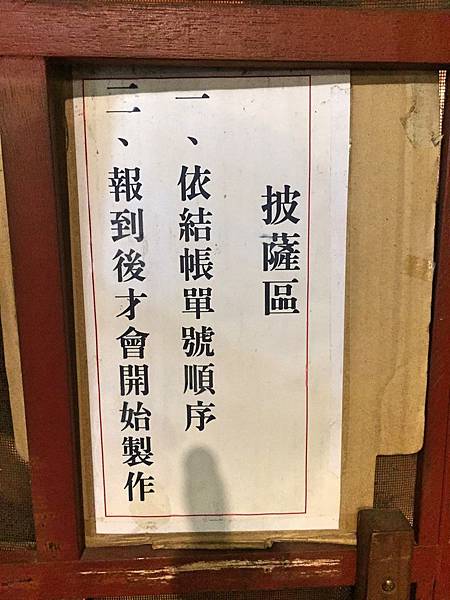 披薩區
一、依結帳單號順序
二、報到後才會開始製作